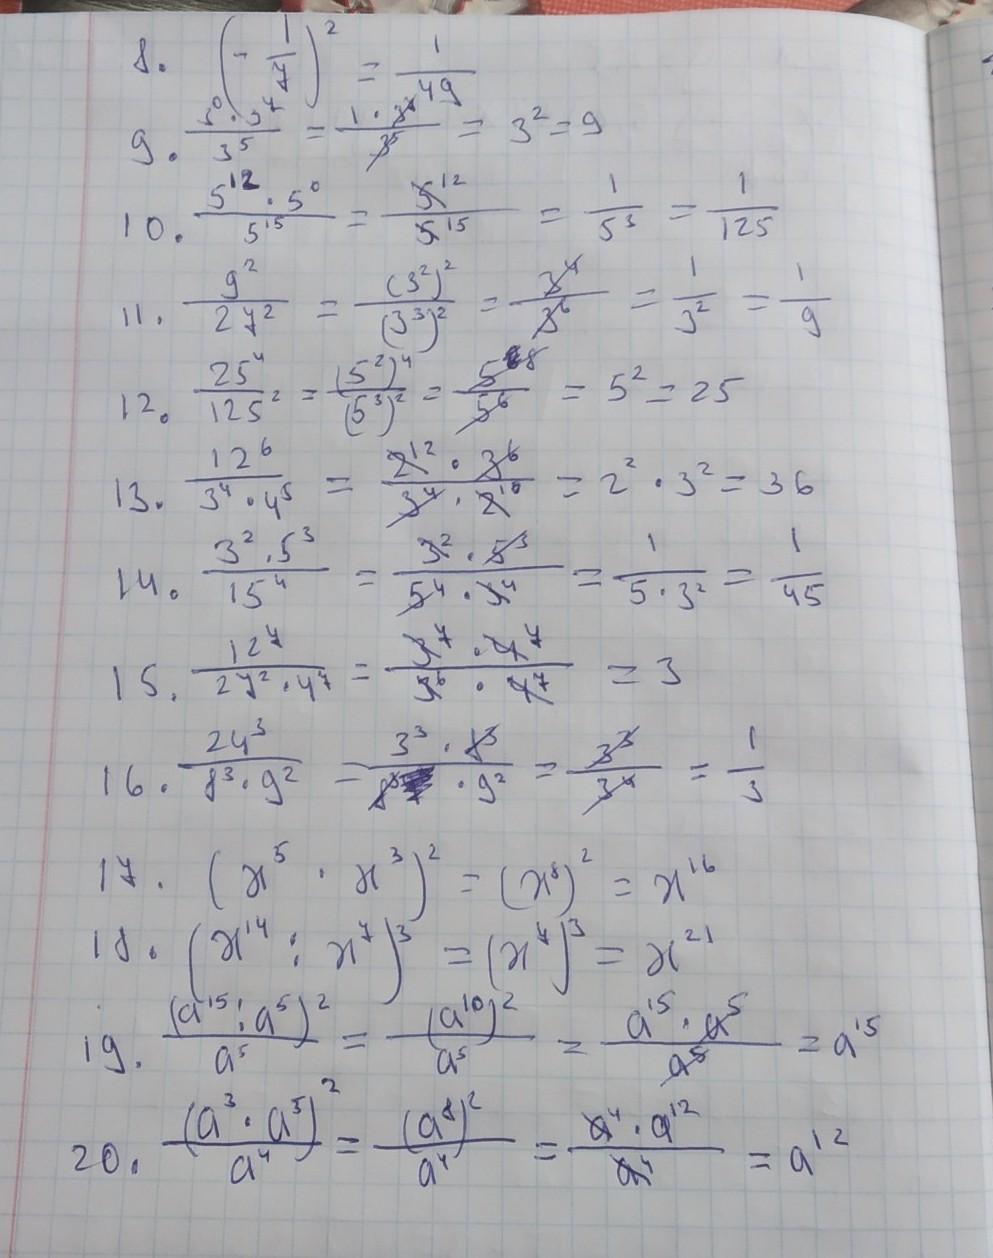 8. (-1/7)² = 1/49
9. 3⁰·3⁷/3⁵ = 1·3⁷/3⁵ = 3² = 9
10. 5¹²·5⁰/5¹⁵ = 5¹²/5¹⁵ = 1/5³ = 1/125
11. 9²/27² = (3²)²/(3³)² = 3⁴/3⁶ = 1/3² = 1/9
12. 25⁴/125² = (5²)⁴/(5³)² = 5⁸/5⁶ = 5² = 25
13. 12⁶/3⁴·4⁵ = 2¹²·3⁶/3⁴·2¹⁰ = 2²·3² = 36
14. 3²·5³/15⁴ = 3²·5³/5⁴·3⁴ = 1/5·3² = 1/45
15. 12⁷/27²·4⁷ = 3⁷·4⁷/3⁶·4⁷ = 3
16. 24³/8³·9² = 3³·8³/8³·9² = 3³/3⁴ = 1/3
17. (x⁵·x³)² = (x⁸)² = x¹⁶
18. (x¹⁴:x⁷)³ = (x⁷)³ = x²¹
19. (a¹⁵:a⁵)²/a⁵ = (a¹⁰)²/a⁵ = a¹⁵·a⁵/a⁵ = a¹⁵
20. (a³·a⁵)²/a⁴ = (a⁸)²/a⁴ = a⁴·a¹²/a⁴ = a¹²